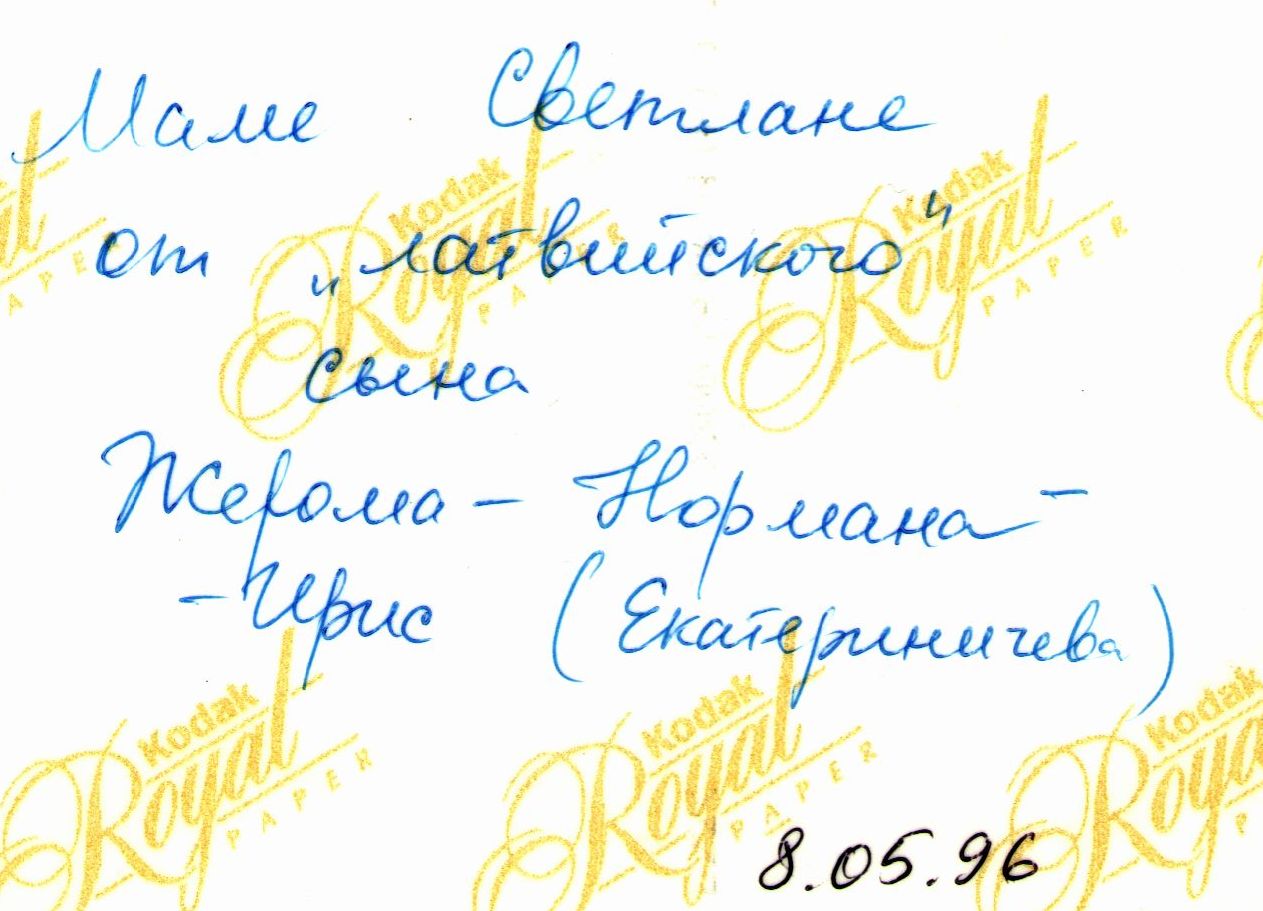 Маме Светлане
от "латвийского"
сына
Жерома - Нормана -
- Ирис (Екатериничева)
8.05.96
Kodak
Royal
PAPER
Kodak
Royal
PAPER
Kodak
Royal
PAPER
Kodak
Royal
PAPER
Kodak
Royal
PAPER